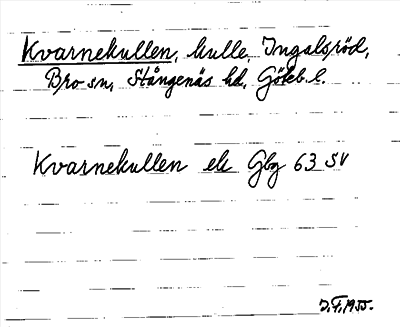 Kvarnekullen, kulle, Ingalsröd,
Bro sn, Stångenäs hd, Göteb. l.
Kvarnekullen ek Gbg 63 SV
J.F. 1955.